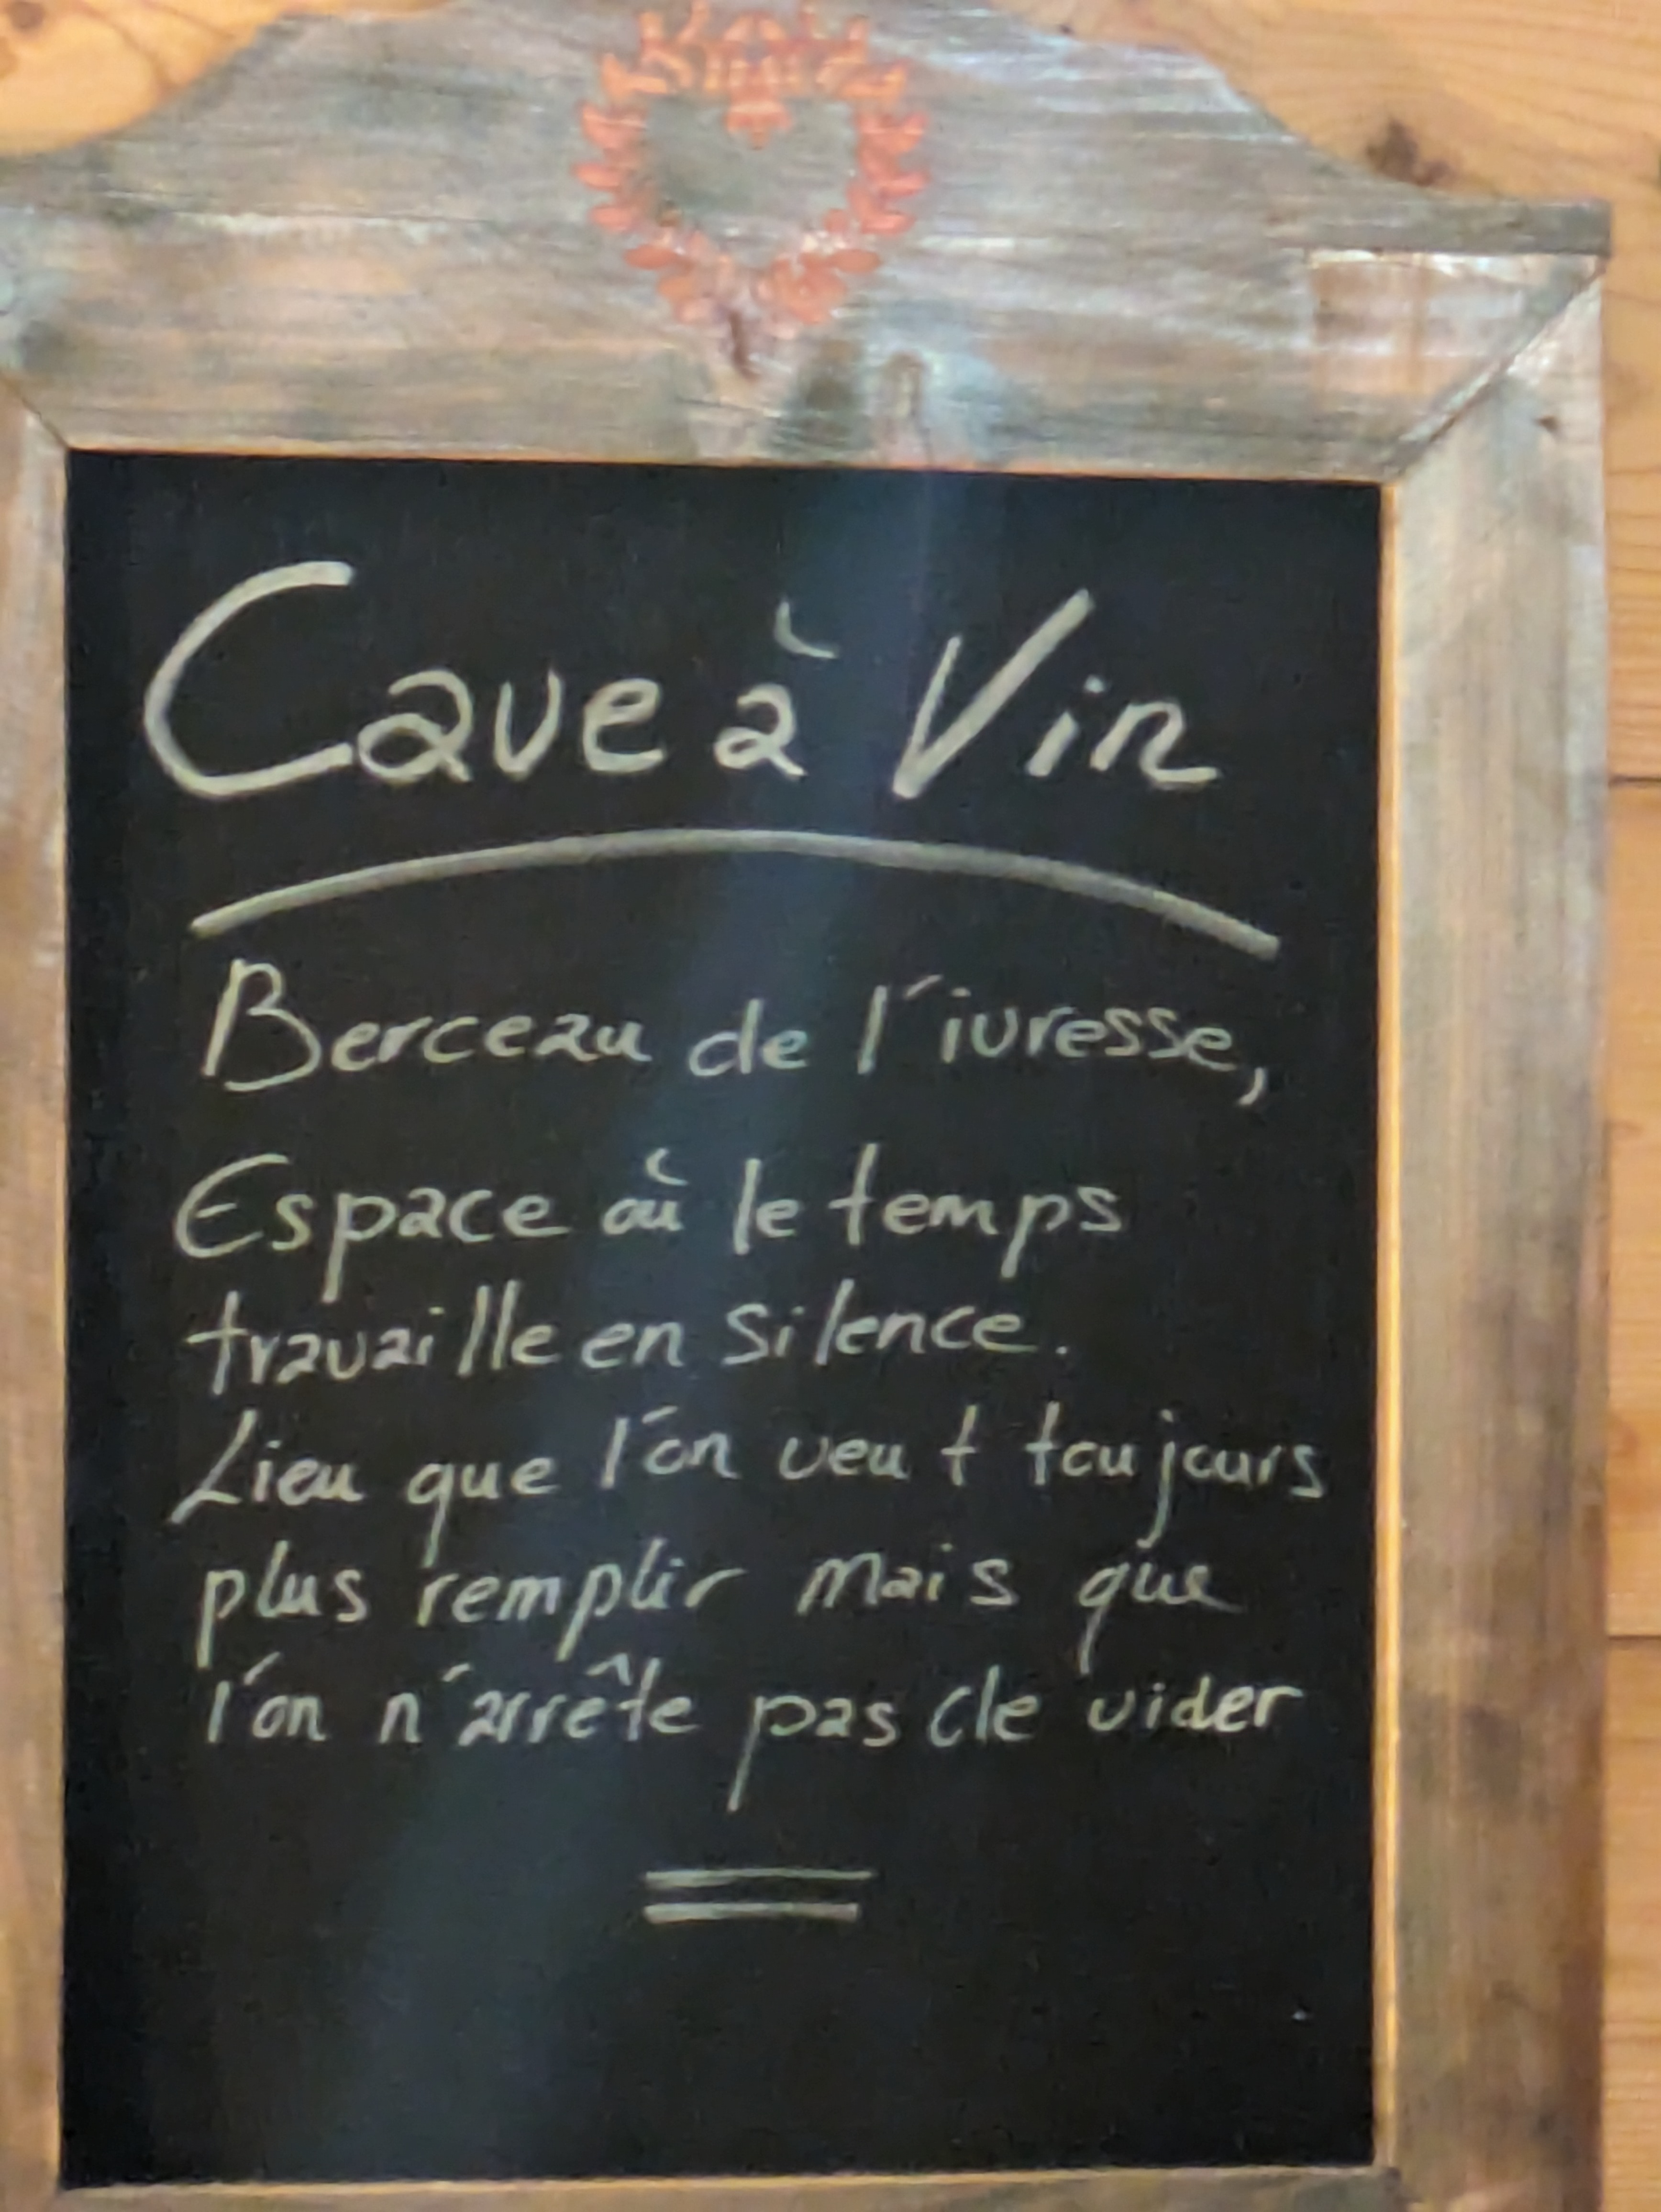 Cave à Vin
Berceau de l'ivresse,
Espace où le temps
travaille en silence.
Lieu que l'on veut toujours
plus remplir mais que
l'on n'arrête pas de vider